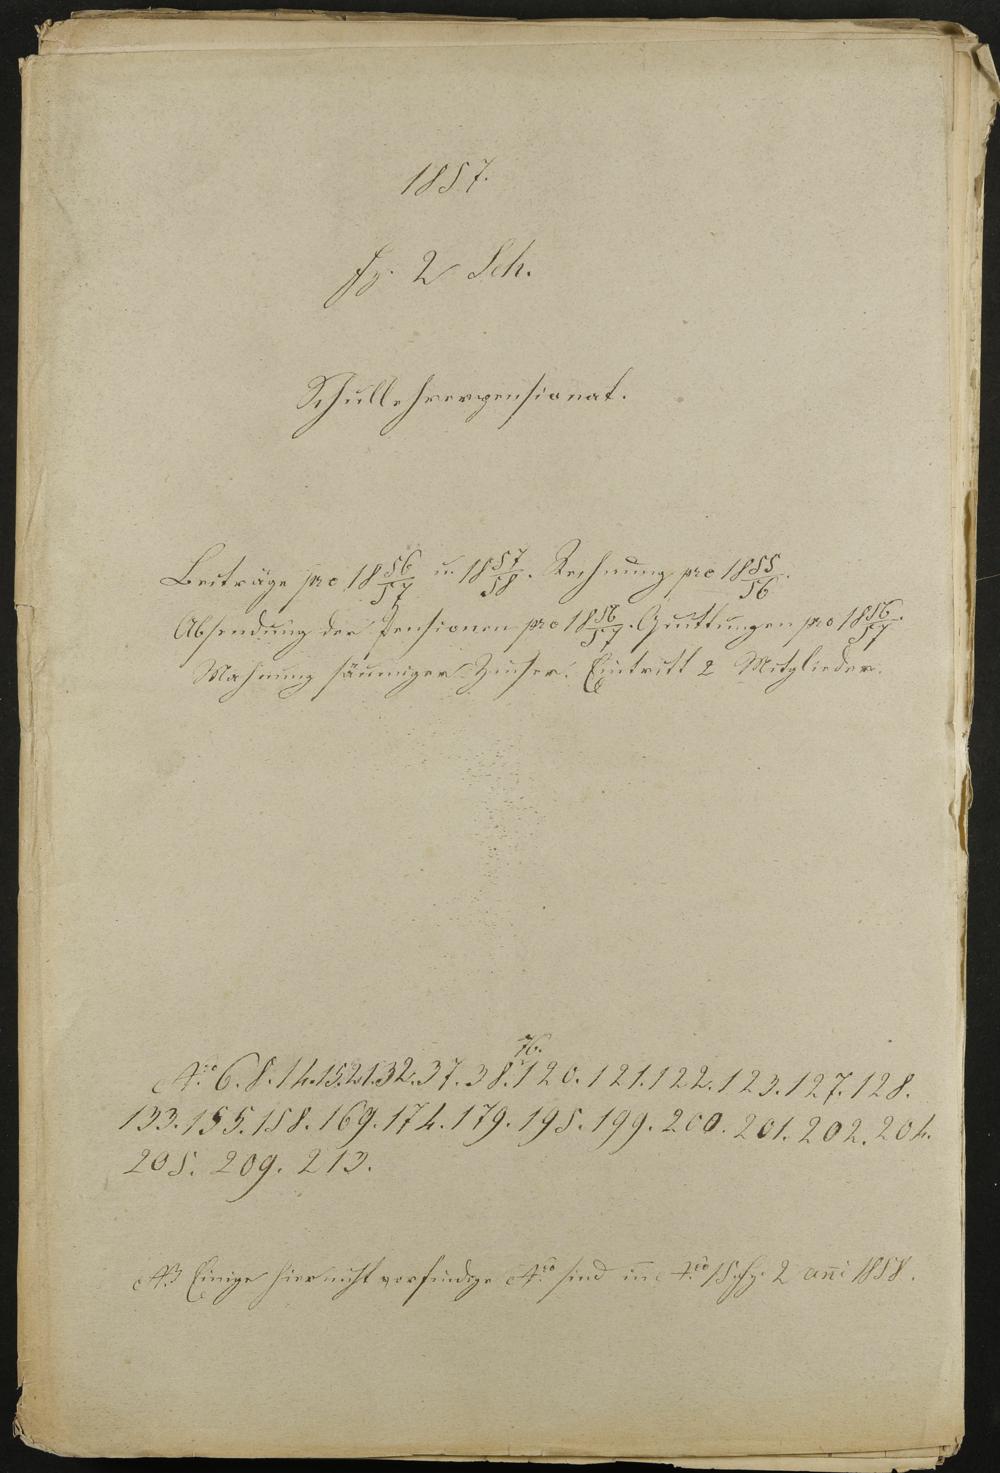 1857.
fz. 2 Sch.
Schullehrerpensionat.
Beiträge pro 18 56/57 u. 18 57/58. Rechnung pro 18 55/56.
Absendung der Pensionen pro 18 56/57. Quittungen pro 18 56/57.
Mahnung säumiger Zinser. Eintritt 2 Mitglieder.
76.
No. 6. 8. 14. 15. 21. 32. 37. 38. 120. 121. 122. 123. 127. 128.
133. 155. 158. 169. 174. 179. 195. 199. 200. 201. 202. 204.
205. 209. 213.
NB Einige hier nicht vorfindige No. sind in No. 15 fz. 2 anni 1858.